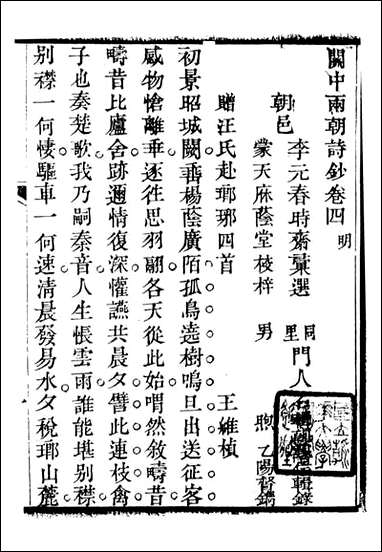 關中兩朝詩鈔卷四 明
朝邑 李元春時齋彙選 同里 門人
蒙天庥蔭堂校梓 男
贈汪氏赴瑯琊四首 王維楨
初景昭城闕垂楊蔭廣陌孤鳥遶樹鳴旦出送征客
感物愴離乖逐往思羽翮各天從此始喟然敘疇昔
疇昔比廬舍跡邇情復深懽讌共晨夕譬此連枝禽
子也奏楚歌我乃嗣秦音人生悵雲雨誰能堪別襟
別襟一何悽驅車一何速清晨發易水夕稅瑯山麓